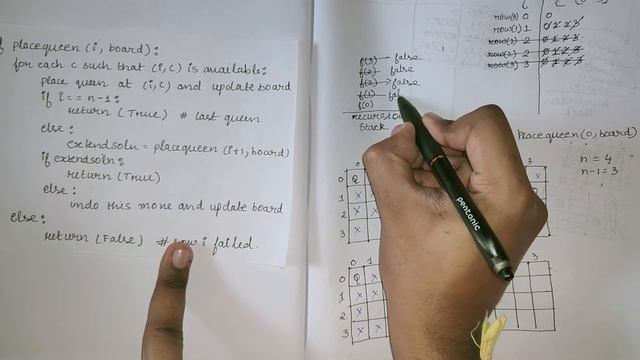 placequeen (i, board):
for each c such that (i,c) is available:
place queen at (i,c) and update board
if i == n-1:
return (True) # last queen
else:
extendsoln = placequeen (i+1, board)
if extendsoln:
return (True)
else:
undo this move and update board
else:
return (False) # row i failed.
f(3) — false
f(2) — false
f(2) → false
f(1) — fal
f(0)
Stack
row(0) 0 0
row(1) 1 0 1 2 3
row(2) 2 0 1 2 3
row(3) 3 0 1 2 3
Placequeen (0, board)
n = 4
n-1 = 3
0 Q
1 X
2 X
3 X
3
X
0 1
3
0 Q X
1 X X
2 X
3 X X
pentonic